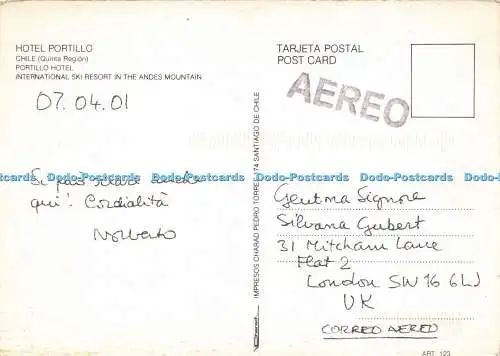 HOTEL PORTILLO
CHILE (Quinta Región)
PORTILLO HOTEL
INTERNATIONAL SKI RESORT IN THE ANDES MOUNTAIN
07.04.01
Si può sciare anche
qui! Cordialità
Norberto
IMPRESOS CHARAD PEDRO TORRES 174 SANTIAGO DE CHILE
TARJETA POSTAL
POST CARD
AEREO
Gentma Signora
Silvana Gubert
31 Mitcham Lane
Flat 2
London SW16 6LJ
UK
CORREO AEREO
ART. 123
Dodo-Postcards Dodo-Postcards Dodo-Postcards Dodo-Postcards Dodo-Postcards